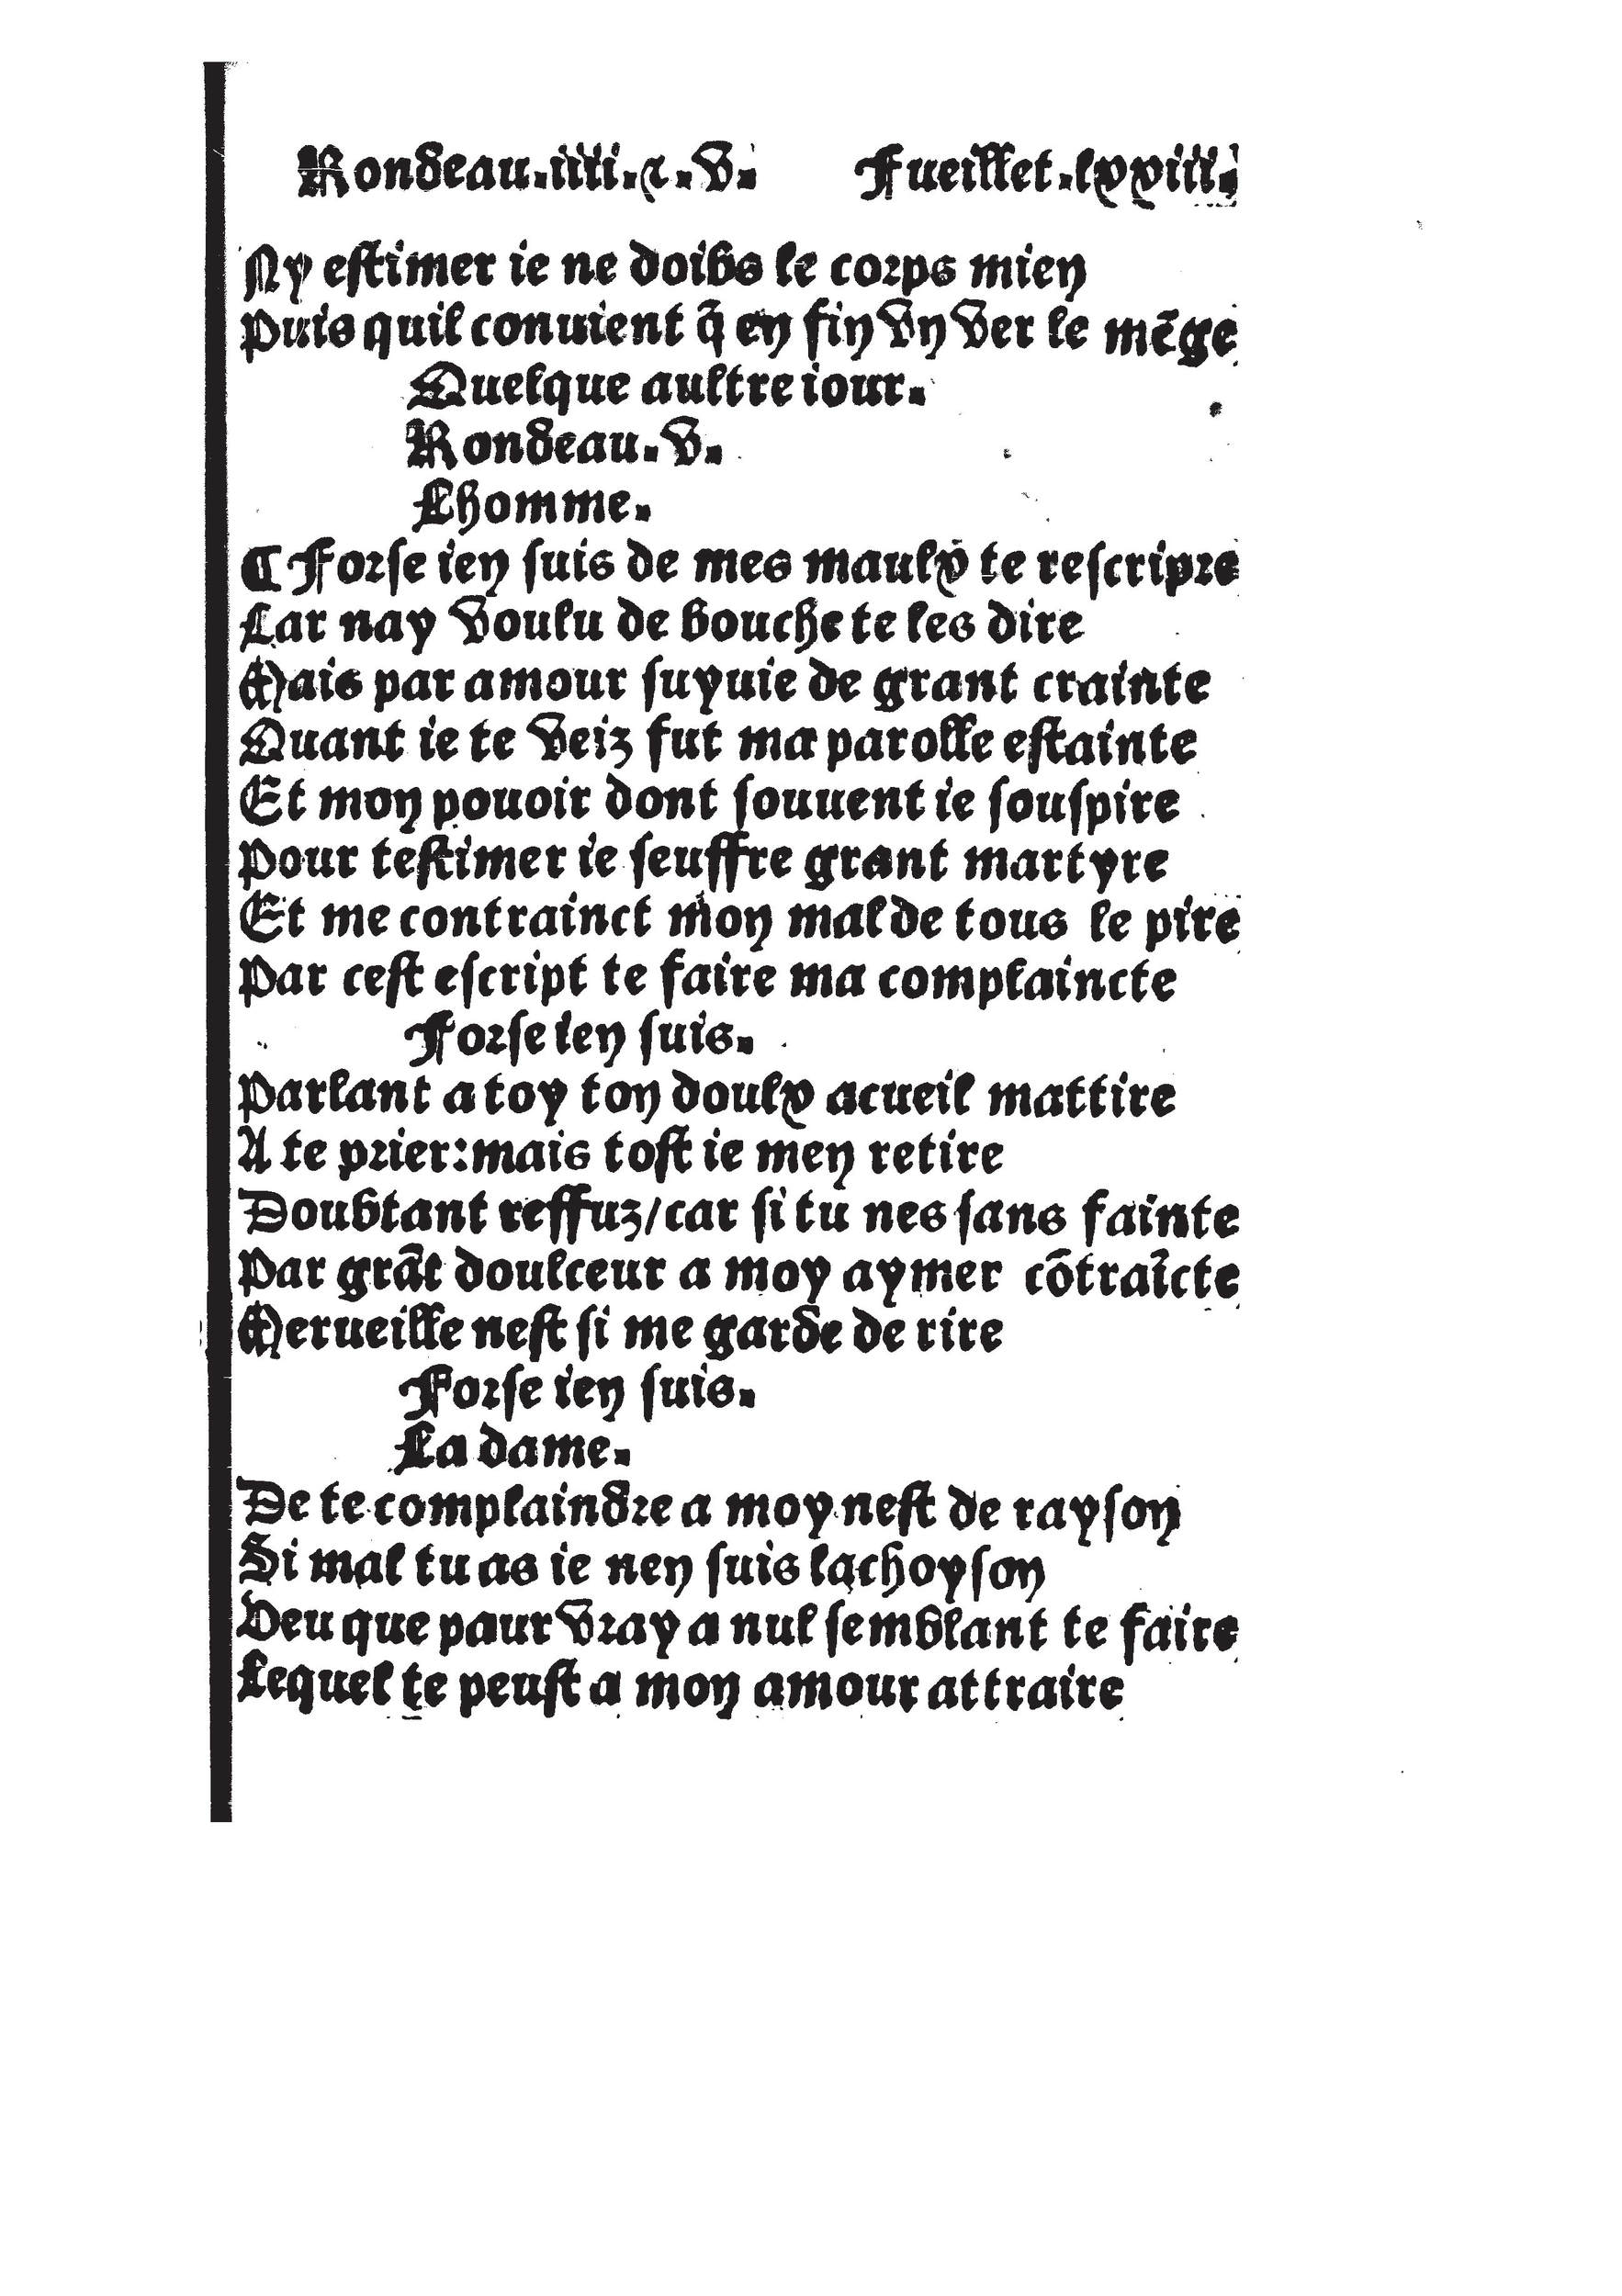 Rondeau.iiii.⁊.v. Fueillet.lxxiii.
Ny estimer ie ne doibs le corps mien
Puis quil conuient q̃ en fin vn ver le mẽge
Quelque aultre iour.
Rondeau.v.
Lhomme.
¶ Forse ien suis de mes maulx te rescripre
Car nay voulu de bouche te les dire
Mais par amour suyuie de grant crainte
Quant ie te veiz fut ma parolle estainte
Et mon pouoir dont souuent ie souspire
Pour testimer ie seuffre grant martyre
Et me contrainct mon mal de tous le pire
Par cest escript te faire ma complaincte
Forse ien suis.
Parlant a toy ton doulx acueil mattire
A te prier:mais tost ie men retire
Doubtant reffuz/car si tu nes sans fainte
Par grãt doulceur a moy aymer cõtraĩcte
Merueille nest si me garde de rire
Forse ien suis.
La dame.
De te complaindre a moy nest de rayson
Si mal tu as ie nen suis lachoyson
Veu que paur vray a nul semblant te faire
Lequel te peust a mon amour attraire